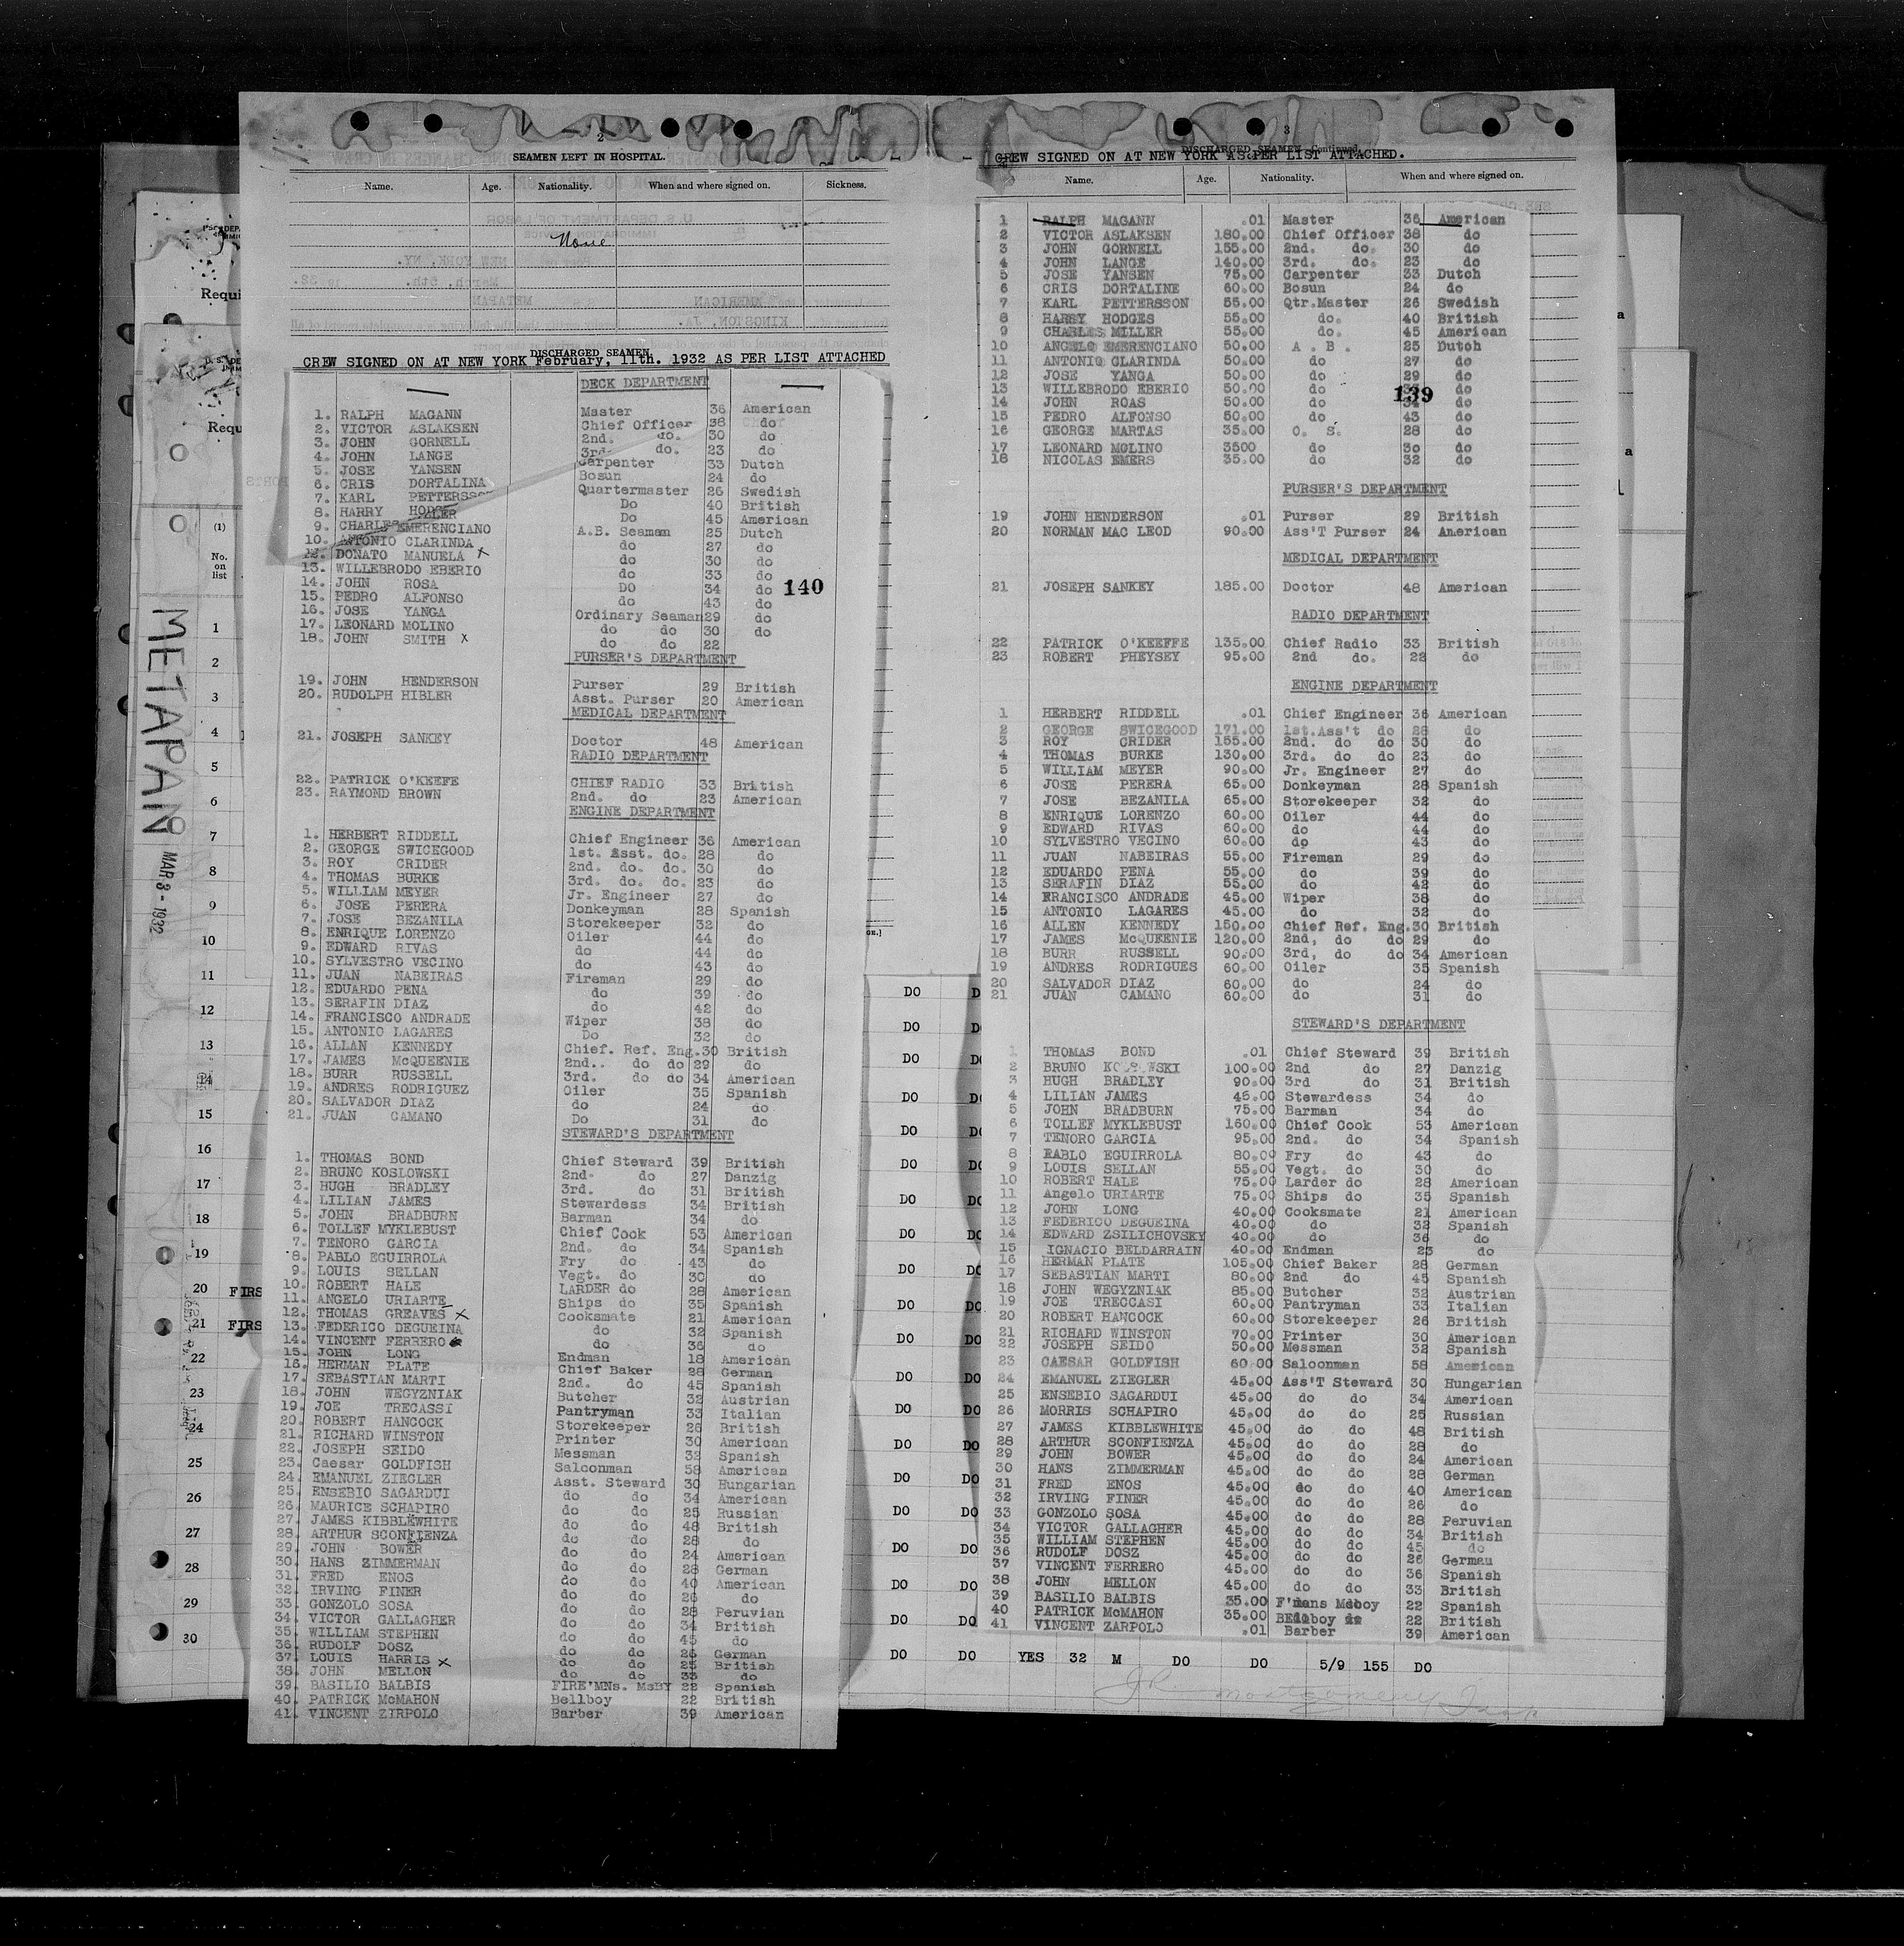 2
SEAMEN LEFT IN HOSPITAL.
Name. Age. Nationality. When and where signed on. Sickness.
None
DISCHARGED SEAMEN
CREW SIGNED ON AT NEW YORK February, 11th. 1932 AS PER LIST ATTACHED
DECK DEPARTMENT
1. RALPH MAGANN Master 36 American
2. VICTOR ASLAKSEN Chief Officer 38 do
3. JOHN GORNELL 2nd. do. 30 do
4. JOHN LANGE 3rd. do. 23 do
5. JOSE YANSEN Carpenter 33 Dutch
6. CRIS DORTALINA Bosun 24 do
7. KARL PETTERSSO Quartermaster 26 Swedish
8. HARRY Do 40 British
9. CHARLES Do 45 American
10. EMERENCIANO A.B. Seaman 25 Dutch
ANTONIO CLARINDA do 27 do
12. DONATO MANUELA x do 30 do
13. WILLEBRODO EBERIO do 33 do
14. JOHN ROSA DO 34 do
140
15. PEDRO ALFONSO do 43 do
16. JOSE YANGA Ordinary Seaman 29 do
17. LEONARD MOLINO do do 30 do
18. JOHN SMITH x do do 22
PURSER'S DEPARTMENT
19. JOHN HENDERSON Purser 29 British
20. RUDOLPH HIBLER Asst. Purser 20 American
MEDICAL DEPARTMENT
21. JOSEPH SANKEY Doctor 48 American
RADIO DEPARTMENT
22. PATRICK O'KEEFE CHIEF RADIO 33 British
23. RAYMOND BROWN 2nd. do 23 American
ENGINE DEPARTMENT
1. HERBERT RIDDELL Chief Engineer 36 American
2. GEORGE SWICEGOOD 1st. Asst. do. 28 do
3. ROY CRIDER 2nd. do. do. 30 do
4. THOMAS BURKE 3rd. do. do. 23 do
5. WILLIAM MEYER Jr. Engineer 27 do
6. JOSE PERERA Donkeyman 28 Spanish
7. JOSE BEZANILA Storekeeper 32 do
8. ENRIQUE LORENZO Oiler 44 do
9. EDWARD RIVAS do 44 do
10. SYLVESTRO VECINO do 43 do
11. JUAN NABEIRAS Fireman 29 do
12. EDUARDO PENA do 39 do
13. SERAFIN DIAZ do 42 do
14. FRANCISCO ANDRADE Wiper 38 do
15. ANTONIO LAGARES Do 32 do
16. ALLAN KENNEDY Chief. Ref. Eng. 30 British
17. JAMES McQUEENIE 2nd.. do do 29 do
18. BURR RUSSELL 3rd. do do 34 American
19. ANDRES RODRIGUEZ Oiler 35 Spanish
20. SALVADOR DIAZ do 24 do
21. JUAN CAMANO Do 31 do
STEWARD'S DEPARTMENT
1. THOMAS BOND Chief Steward 39 British
2. BRUNO KOSLOWSKI 2nd. do 27 Danzig
3. HUGH BRADLEY 3rd. do 31 British
4. LILIAN JAMES Stewardess 34 British
5. JOHN BRADBURN Barman 34 do
6. TOLLEF MYKLEBUST Chief Cook 53 American
7. TENORO GARCIA 2nd. do 34 Spanish
8. PABLO EGUIRROLA Fry do 43 do
9. LOUIS SELLAN Vegt. do 30 do
10. ROBERT HALE LARDER do 28 American
11. ANGELO URIARTE Ships do 35 Spanish
12. THOMAS GREAVES x Cooksmate 21 American
13. FEDERICO DEGUEINA do 32 Spanish
14. VINCENT FERRERO x do 36 do
15. JOHN LONG Endman 18 American
16. HERMAN PLATE Chief Baker 28 German
17. SEBASTIAN MARTI 2nd. do 45 Spanish
18. JOHN WEGYZNIAK Butcher 32 Austrian
19. JOE TRECASSI Pantryman 33 Italian
20. ROBERT HANCOCK Storekeeper 26 British
21. RICHARD WINSTON Printer 30 American
22. JOSEPH SEIDO Messman 32 Spanish
23. Caesar GOLDFISH Saloonman 58 American
24. EMANUEL ZIEGLER Asst. Steward 30 Hungarian
25. ENSEBIO SAGARDUI do do 34 American
26. MAURICE SCHAPIRO do do 25 Russian
27. JAMES KIBBLEWHITE do do 48 British
28. ARTHUR SCONFIENZA do do 28 do
29. JOHN BOWER do do 24 American
30. HANS ZIMMERMAN do do 28 German
31. FRED ENOS do do 40 American
32. IRVING FINER do do 26 do
33. GONZOLO SOSA do do 28 Peruvian
34. VICTOR GALLAGHER do do 34 British
35. WILLIAM STEPHEN do do 45 do
36. RUDOLF DOSZ do do 26 German
37. LOUIS HARRIS x do do 25 British
38. JOHN MELLON do do 33 do
39. BASILIO BALBIS FIRE'MNs. MsBY 22 Spanish
40. PATRICK McMAHON Bellboy 22 British
41. VINCENT ZIRPOLO Barber 39 American
3
DISCHARGED SEAMEN Continued
CREW SIGNED ON AT NEW YORK AS PER LIST ATTACHED.
Name. Age. Nationality. When and where signed on.
1 RALPH MAGANN .01 Master 36 American
2 VICTOR ASLAKSEN 180.00 Chief Officer 38 do
3 JOHN GORNELL 155.00 2nd. do. 30 do
4 JOHN LANGE 140.00 3rd. do. 23 do
5 JOSE YANSEN 75.00 Carpenter 33 Dutch
6 CRIS DORTALINE 60.00 Bosun 24 do
7 KARL PETTERSSON 55.00 Qtr.Master 26 Swedish
8 HARRY HODGES 55.00 do. 40 British
9 CHARLES MILLER 55.00 do. 45 American
10 ANGELO EMERENCIANO 50.00 A . B . 25 Dutch
11 ANTONIO CLARINDA 50.00 do 27 do
12 JOSE YANGA 50.00 do 29 do
13 WILLEBRODO EBERIO 50.00 do do
139
14 JOHN ROAS 50.00 do 34 do
15 PEDRO ALFONSO 50.00 do 43 do
16 GEORGE MARTAS 35.00 O. S. 28 do
17 LEONARD MOLINO 3500 do 30 do
18 NICOLAS EMERS 35.00 do 32 do
PURSER'S DEPARTMENT
19 JOHN HENDERSON .01 Purser 29 British
20 NORMAN MAC LEOD 90.00 Ass'T Purser 24 American
MEDICAL DEPARTMENT
21 JOSEPH SANKEY 185.00 Doctor 48 American
RADIO DEPARTMENT
22 PATRICK O'KEEFFE 135.00 Chief Radio 33 British
23 ROBERT PHEYSEY 95.00 2nd do. 22 do
ENGINE DEPARTMENT
1 HERBERT RIDDELL .01 Chief Engineer 36 American
2 GEORGE SWICEGOOD 171.00 1st.Ass't do 28 do
3 ROY CRIDER 155.00 2nd. do do 30 do
4 THOMAS BURKE 130.00 3rd. do do 23 do
5 WILLIAM MEYER 90.00 Jr. Engineer 27 do
6 JOSE PERERA 65.00 Donkeyman 28 Spanish
7 JOSE BEZANILA 65.00 Storekeeper 32 do
8 ENRIQUE LORENZO 60.00 Oiler 44 do
9 EDWARD RIVAS 60.00 do 44 do
10 SYLVESTRO VECINO 60.00 do 43 do
11 JUAN NABEIRAS 55.00 Fireman 29 do
12 EDUARDO PENA 55.00 do 39 do
13 SERAFIN DIAZ 55.00 do 42 do
14 FRANCISCO ANDRADE 45.00 Wiper 38 do
15 ANTONIO LAGARES 45.00 do 32 do
16 ALLEN KENNEDY 150.00 Chief Ref. Eng. 30 British
17 JAMES McQUEENIE 120.00 2nd, do do 29 do
18 BURR RUSSELL 90.00 3rd, do do 34 American
19 ANDRES RODRIGUES 60.00 Oiler 35 Spanish
20 SALVADOR DIAZ 60.00 do 24 do
21 JUAN CAMANO 60.00 do 31 do
STEWARD'S DEPARTMENT
1 THOMAS BOND .01 Chief Steward 39 British
2 BRUNO KOSLOWSKI 100.00 2nd do 27 Danzig
3 HUGH BRADLEY 90.00 3rd do 31 British
4 LILIAN JAMES 45.00 Stewardess 34 do
5 JOHN BRADBURN 75.00 Barman 34 do
6 TOLLEF MYKLEBUST 160.00 Chief Cook 53 American
7 TENORO GARCIA 95.00 2nd. do 34 Spanish
8 PABLO EGUIRROLA 80.00 Fry do 43 do
9 LOUIS SELLAN 55.00 Vegt. do 30 do
10 ROBERT HALE 75.00 Larder do 28 American
11 Angelo URIARTE 75.00 Ships do 35 Spanish
12 JOHN LONG 40.00 Cooksmate 21 American
13 FEDERICO DEGUEINA 40.00 do 32 Spanish
14 EDWARD ZSILICHOVSKY 40.00 do 36 do
15 IGNACIO BELDARRAIN 40.00 Endman 23 do
16 HERMAN PLATE 105.00 Chief Baker 28 German
17 SEBASTIAN MARTI 80.00 2nd do 45 Spanish
18 JOHN WEGYZNIAK 85.00 Butcher 32 Austrian
19 JOE TRECCASI 60.00 Pantryman 33 Italian
20 ROBERT HANCOCK 60.00 Storekeeper 26 British
21 RICHARD WINSTON 70.00 Printer 30 American
22 JOSEPH SEIDO 50.00 Messman 32 Spanish
23 CAESAR GOLDFISH 60.00 Saloonman 58 American
24 EMANUEL ZIEGLER 45.00 Ass'T Steward 30 Hungarian
25 ENSEBIO SAGARDUI 45.00 do do 34 American
26 MORRIS SCHAPIRO 45.00 do do 25 Russian
27 JAMES KIBBLEWHITE 45.00 do do 48 British
28 ARTHUR SCONFIENZA 45.00 do do 28 do
29 JOHN BOWER 45.00 do do 24 American
30 HANS ZIMMERMAN 45.00 do do 28 German
31 FRED ENOS 45.00 do do 40 American
32 IRVING FINER 45.00 do do 26 do
33 GONZOLO SOSA 45.00 do do 28 Peruvian
34 VICTOR GALLAGHER 45.00 do do 34 British
35 WILLIAM STEPHEN 45.00 do do 45 do
36 RUDOLF DOSZ 45.00 do do 26 German
37 VINCENT FERRERO 45.00 do do 36 Spanish
38 JOHN MELLON 45.00 do do 33 British
39 BASILIO BALBIS 35.00 F'mans boy 22 Spanish
40 PATRICK McMAHON 35.00 Bellboy 22 British
41 VINCENT ZARPOLO .01 Barber 39 American
DO DO YES 32 M DO DO 5/9 155 DO
Montgomery
METAPAN
MAR 3 - 1932
Requi
Requ
(1)
No. on list
1
2
3
4
5
6
7
8
9
10
11
12
13
14
15
16
17
18
19
20 FIRS
21 FIRS
22
23
24
25
26
27
28
29
30